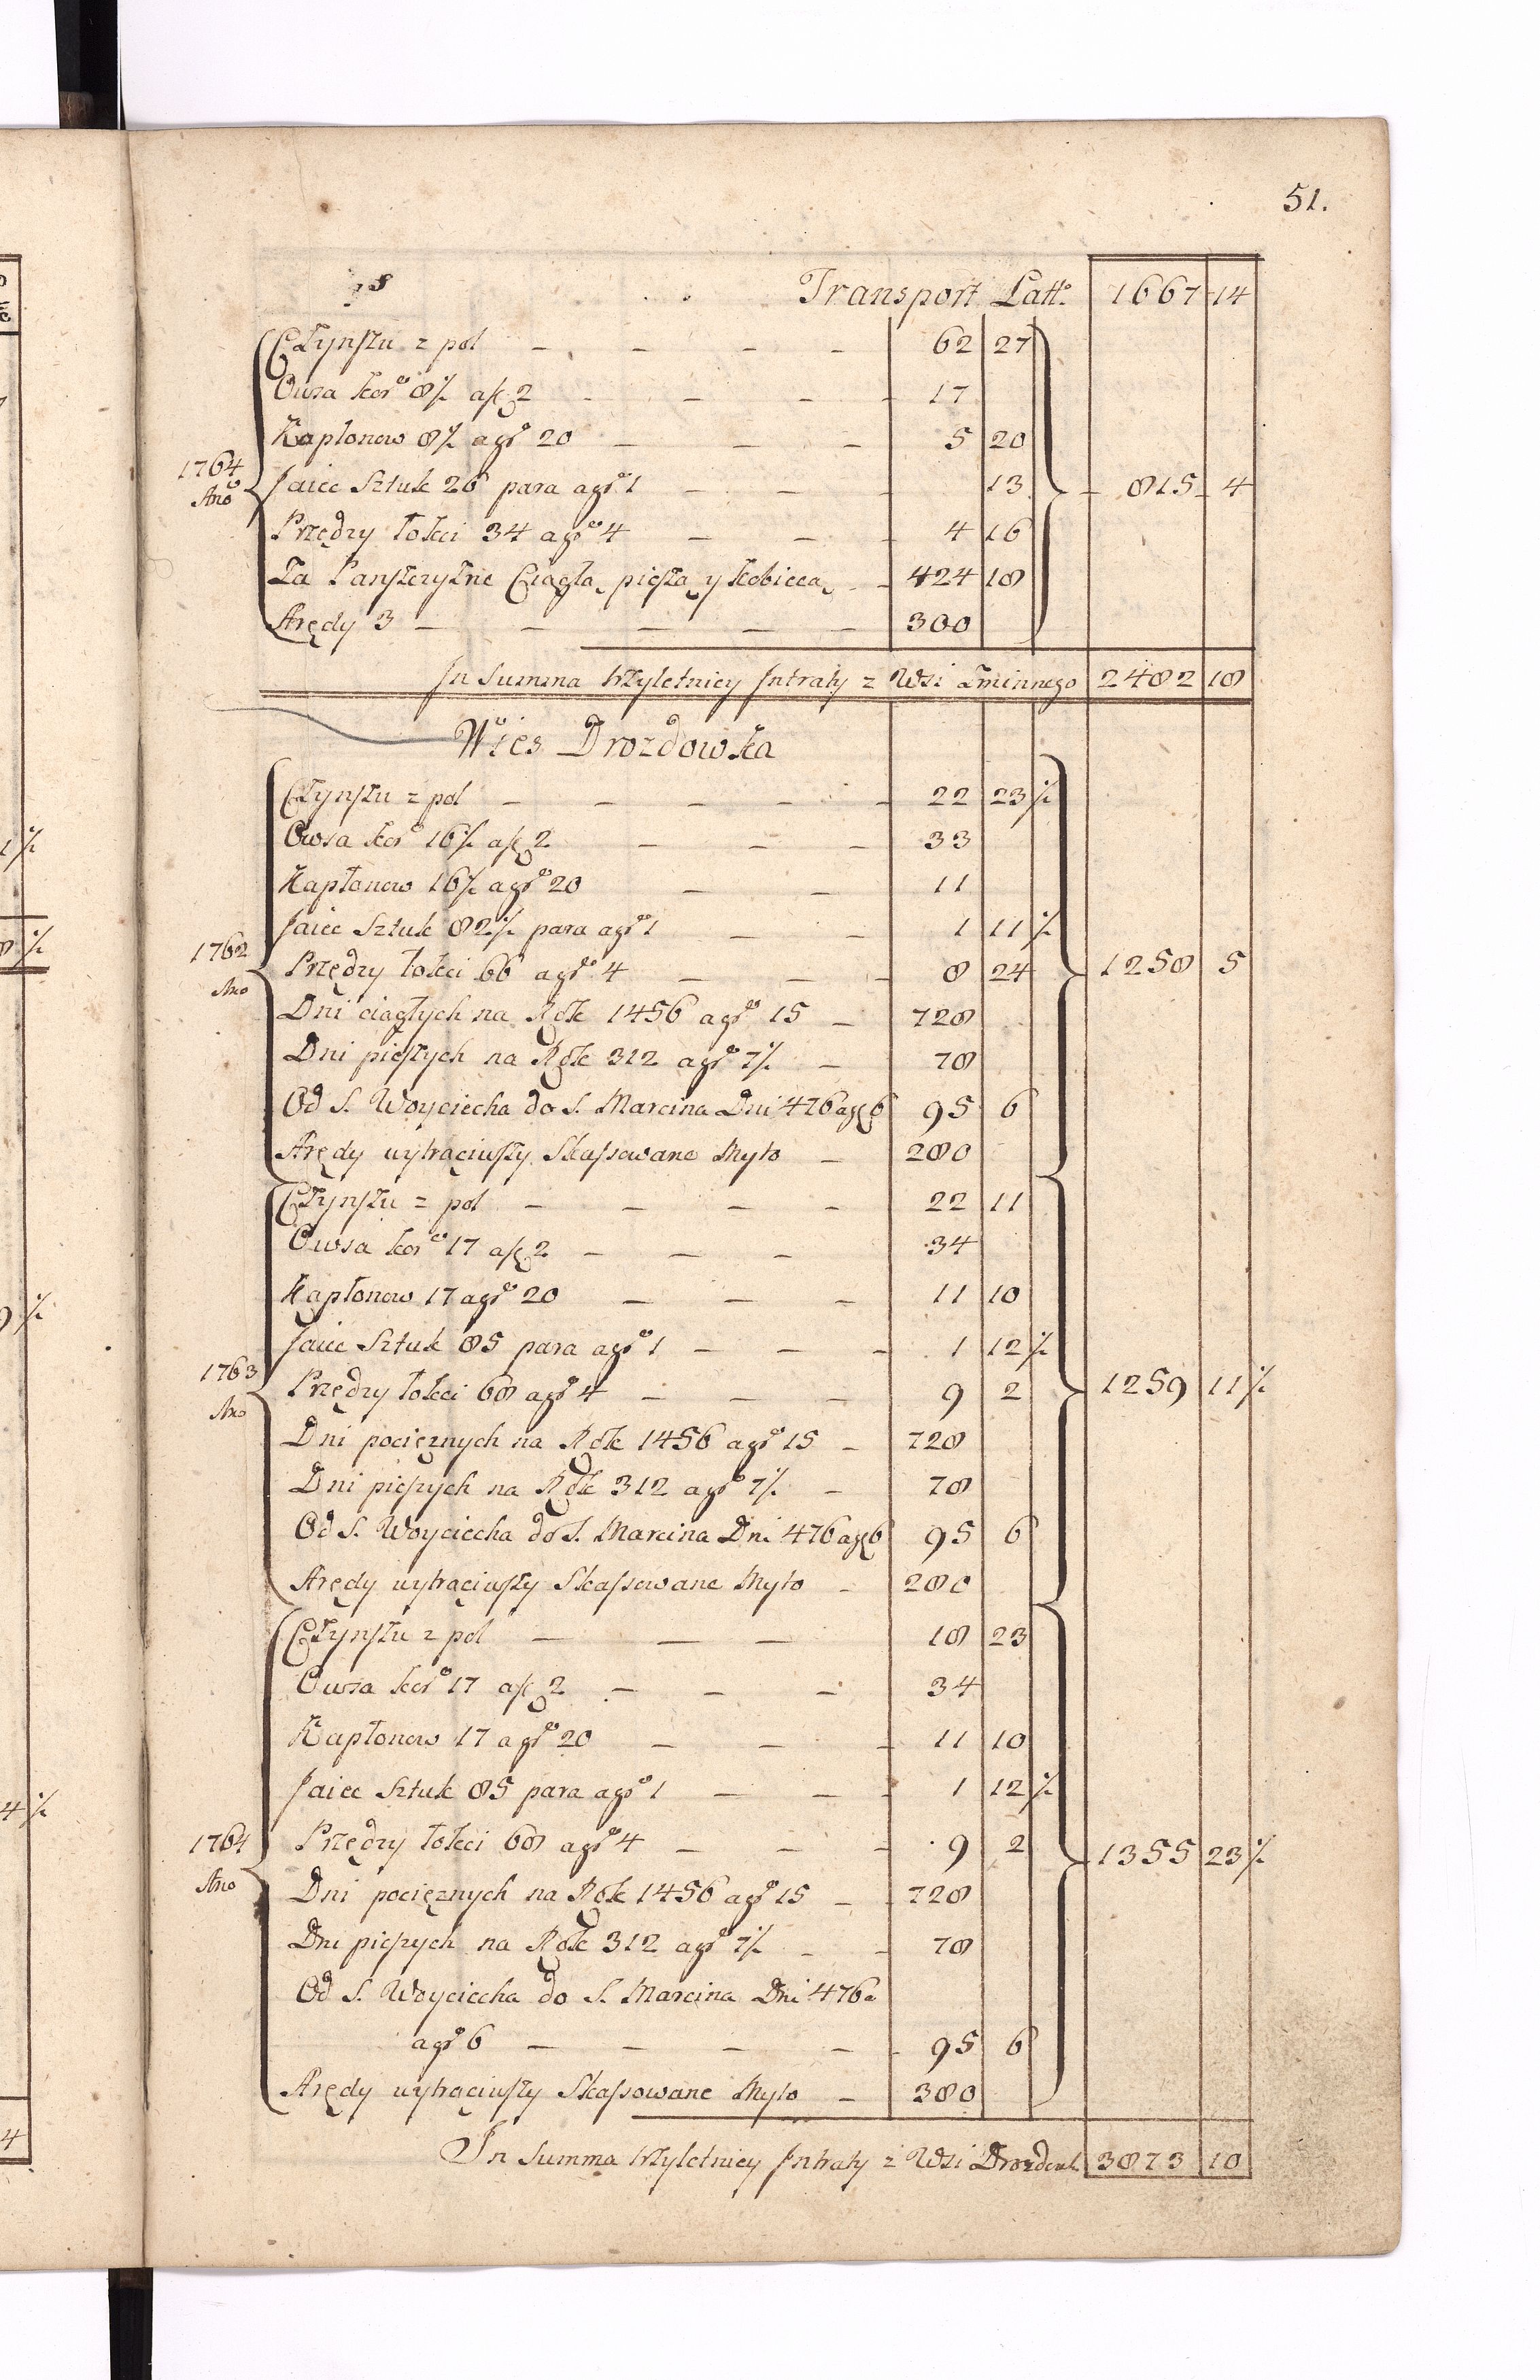 51.
Transport Latt: 1667 14
Czynszu z pol — — — — 62 27
Owsa kor: 8½ a f 2 — — — — 17
Kapłonow 8½ a gr 20 — — — 5 20
1764 Ano Jaiec Sztuk 26 para a gr 1 — — — 13 — 815 4
Przędzy łokci 34 a gr 4 — — — 4 16
Za Panszczyznę Ciągłą, pieszą, y kobiecą, — 424 18
Arędy 3 — — — — — 300
Jn Summa trzyletniey Jntraty z Wsi Zminnego 2482 18
Wies Drozdowka
Czynszu z pol — — — — — 22 23½
Owsa kor: 16½ a f 2 — — — 33
Kapłonow 16½ a gr 20 — — 11
Jaiec Sztuk 82½ para a gr 1 — — 1 11½
1762 Ano Przędzy łokci 66 a gr 4 — — — 8 24 1258 5
Dni ciągłych na Rok 1456 a gr 15 — 728
Dni pieszych na Rok 312 a gr 7½ — 78
Od S. Woyciecha do S. Marcina Dni 476 a gr 6 95 6
Arędy wytrąciwszy Skassowane Myto — 280
Czynszu z pol — — — — 22 11
Owsa kor: 17 a f 2 — — — 34
Kapłonow 17 a gr 20 — — — 11 10
Jaiec Sztuk 85 para a gr 1 — — — 1 12½
1763 Ano Przędzy łokci 68 a gr 4 — — — 9 2 1259 11½
Dni pocięznych na Rok 1456 a gr 15 — 728
Dni pieszych na Rok 312 a gr 7½ — 78
Od S. Woyciecha do S. Marcina Dni 476 a gr 6 95 6
Arędy wytrąciwszy Skassowane Myto — 280
Czynszu z pol — — — 18 23
Owsa kor: 17 a f 2 — — — 34
Kapłonow 17 a gr 20 — — — 11 10
Jaiec Sztuk 85 para a gr 1 — — — 1 12½
1764 Ano Przędzy łokci 68 a gr 4 — — — 9 2 1355 23½
Dni pocięznych na Rok 1456 a gr 15 — 728
Dni pieszych na Rok 312 a gr 7½ — — 78
Od S. Woyciecha do S. Marcina Dni 476
a gr 6 — — — — 95 6
Arędy wytrąciwszy Skassowane Myto — 380
Jn Summa trzyletniey Jntraty z Wsi Drozdowk. 3873 10